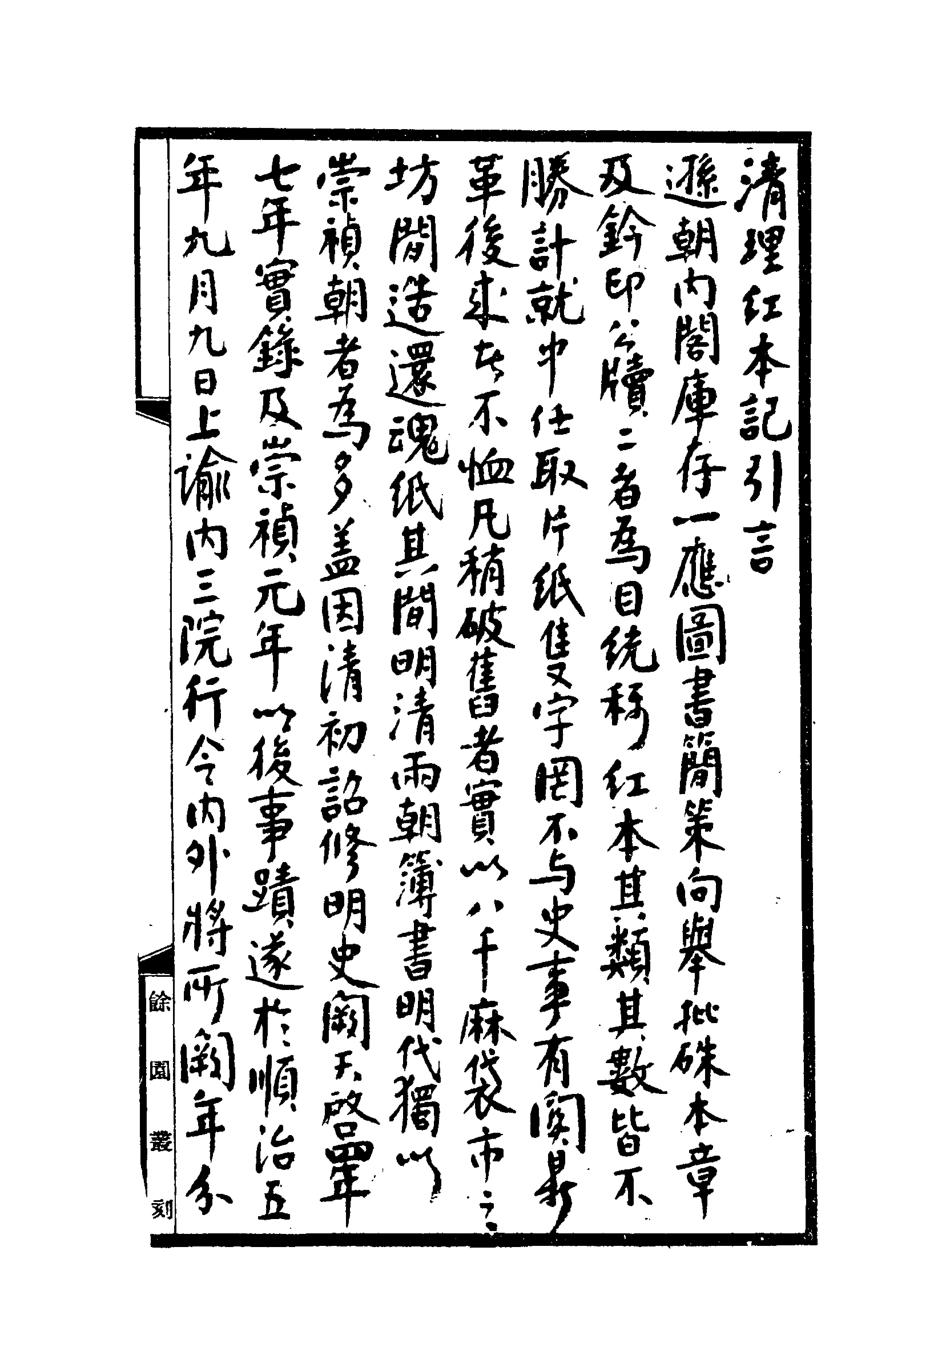 清理紅本記引言
遜朝内閣庫存一應圖書簡策向舉批硃本章
及鈐印公牘二者為目统称紅本其類其數皆不
勝計就中任取片紙隻字罔不与史事有関鼎
革後來者不恤凡稍破舊者實以八千麻袋市之
坊間造還魂紙其間明清兩朝簿書明代獨以
崇禎朝者為多盖因清初詔修明史闕天啓四年
七年實錄及崇禎元年以後事蹟遂於順治五
年九月九日上諭内三院行令内外將所闕年分
餘園叢刻